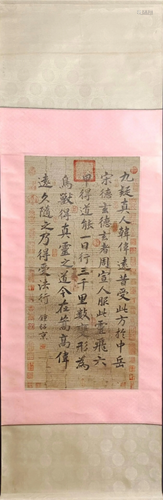 九疑真人韓偉遠昔受此方於中岳
宋德玄德玄者周宣人服此靈飛六
甲得道能一日行三千里數變形為
鳥獸得真靈之道今在嵩高偉
遠久隨之乃得受法行 鍾紹京